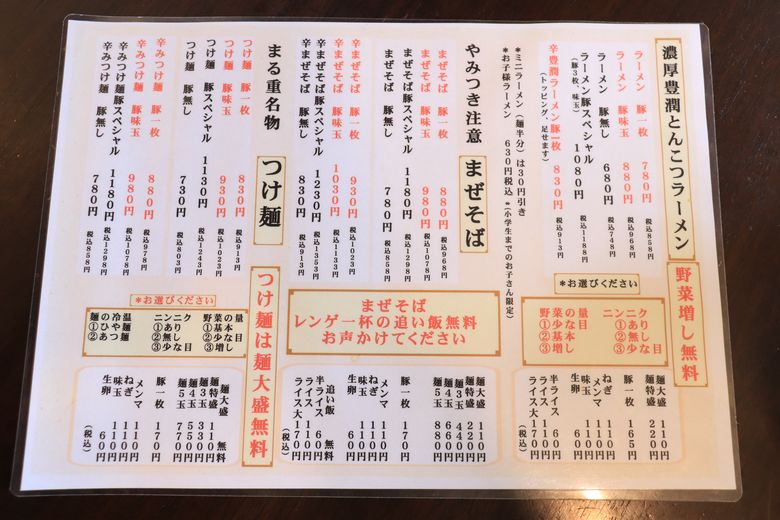 濃厚豊潤とんこつラーメン
野菜増し無料
ラーメン 豚一枚 780円 税込858円
ラーメン 豚味玉 880円 税込968円
ラーメン 豚無し 680円 税込748円
ラーメン豚スペシャル 1080円 税込1188円
(豚3枚、味玉)
辛豊潤ラーメン豚一枚 830円 税込913円
(トッピング、足せます)
*ミニラーメン(麺半分)は30円引き
*お子様ラーメン 630円税込 *(小学生までのお子さん限定)
*お選びください
野菜の量
①少な目
②基本
③少し増し
ニンニク
①あり
②無し
③少な目
麺大盛 110円
麺特盛 220円
豚一枚 165円
メンマ 110円
ねぎ 110円
味玉 110円
生卵 60円
半ライス 60円
ライス 110円
ライス大 170円
(税込)
やみつき注意
まぜそば
まぜそば 豚一枚 880円 税込968円
まぜそば 豚味玉 980円 税込1078円
まぜそば豚スペシャル 1180円 税込1298円
まぜそば 豚無し 780円 税込858円
辛まぜそば 豚一枚 930円 税込1023円
辛まぜそば 豚味玉 1030円 税込1133円
辛まぜそば豚スペシャル 1230円 税込1353円
辛まぜそば 豚無し 830円 税込913円
まぜそば
レンゲ一杯の追い飯無料
お声かけてください
麺大盛 110円
麺特盛 220円
麺3玉 440円
麺4玉 660円
麺5玉 880円
豚一枚 170円
メンマ 110円
ねぎ 110円
味玉 110円
生卵 60円
追い飯 無料
半ライス 60円
ライス 110円
ライス大 170円
(税込)
まる重名物
つけ麺
つけ麺は麺大盛無料
つけ麺 豚一枚 830円 税込913円
つけ麺 豚味玉 930円 税込1023円
つけ麺 豚スペシャル 1130円 税込1243円
つけ麺 豚無し 730円 税込803円
辛みつけ麺 豚一枚 880円 税込978円
辛みつけ麺 豚味玉 980円 税込1078円
辛みつけ麺豚スペシャル 1180円 税込1298円
辛みつけ麺 豚無し 780円 税込858円
*お選びください
麺の冷温
①ひやつ麺
②あつ麺
ニンニク
①あり
②無し
③少な目
野菜の量
①基本
②少なし
③増し
麺大盛 無料
麺特盛 110円
麺3玉 330円
麺4玉 550円
麺5玉 770円
豚一枚 170円
メンマ 110円
ねぎ 110円
味玉 110円
生卵 60円
(税込)